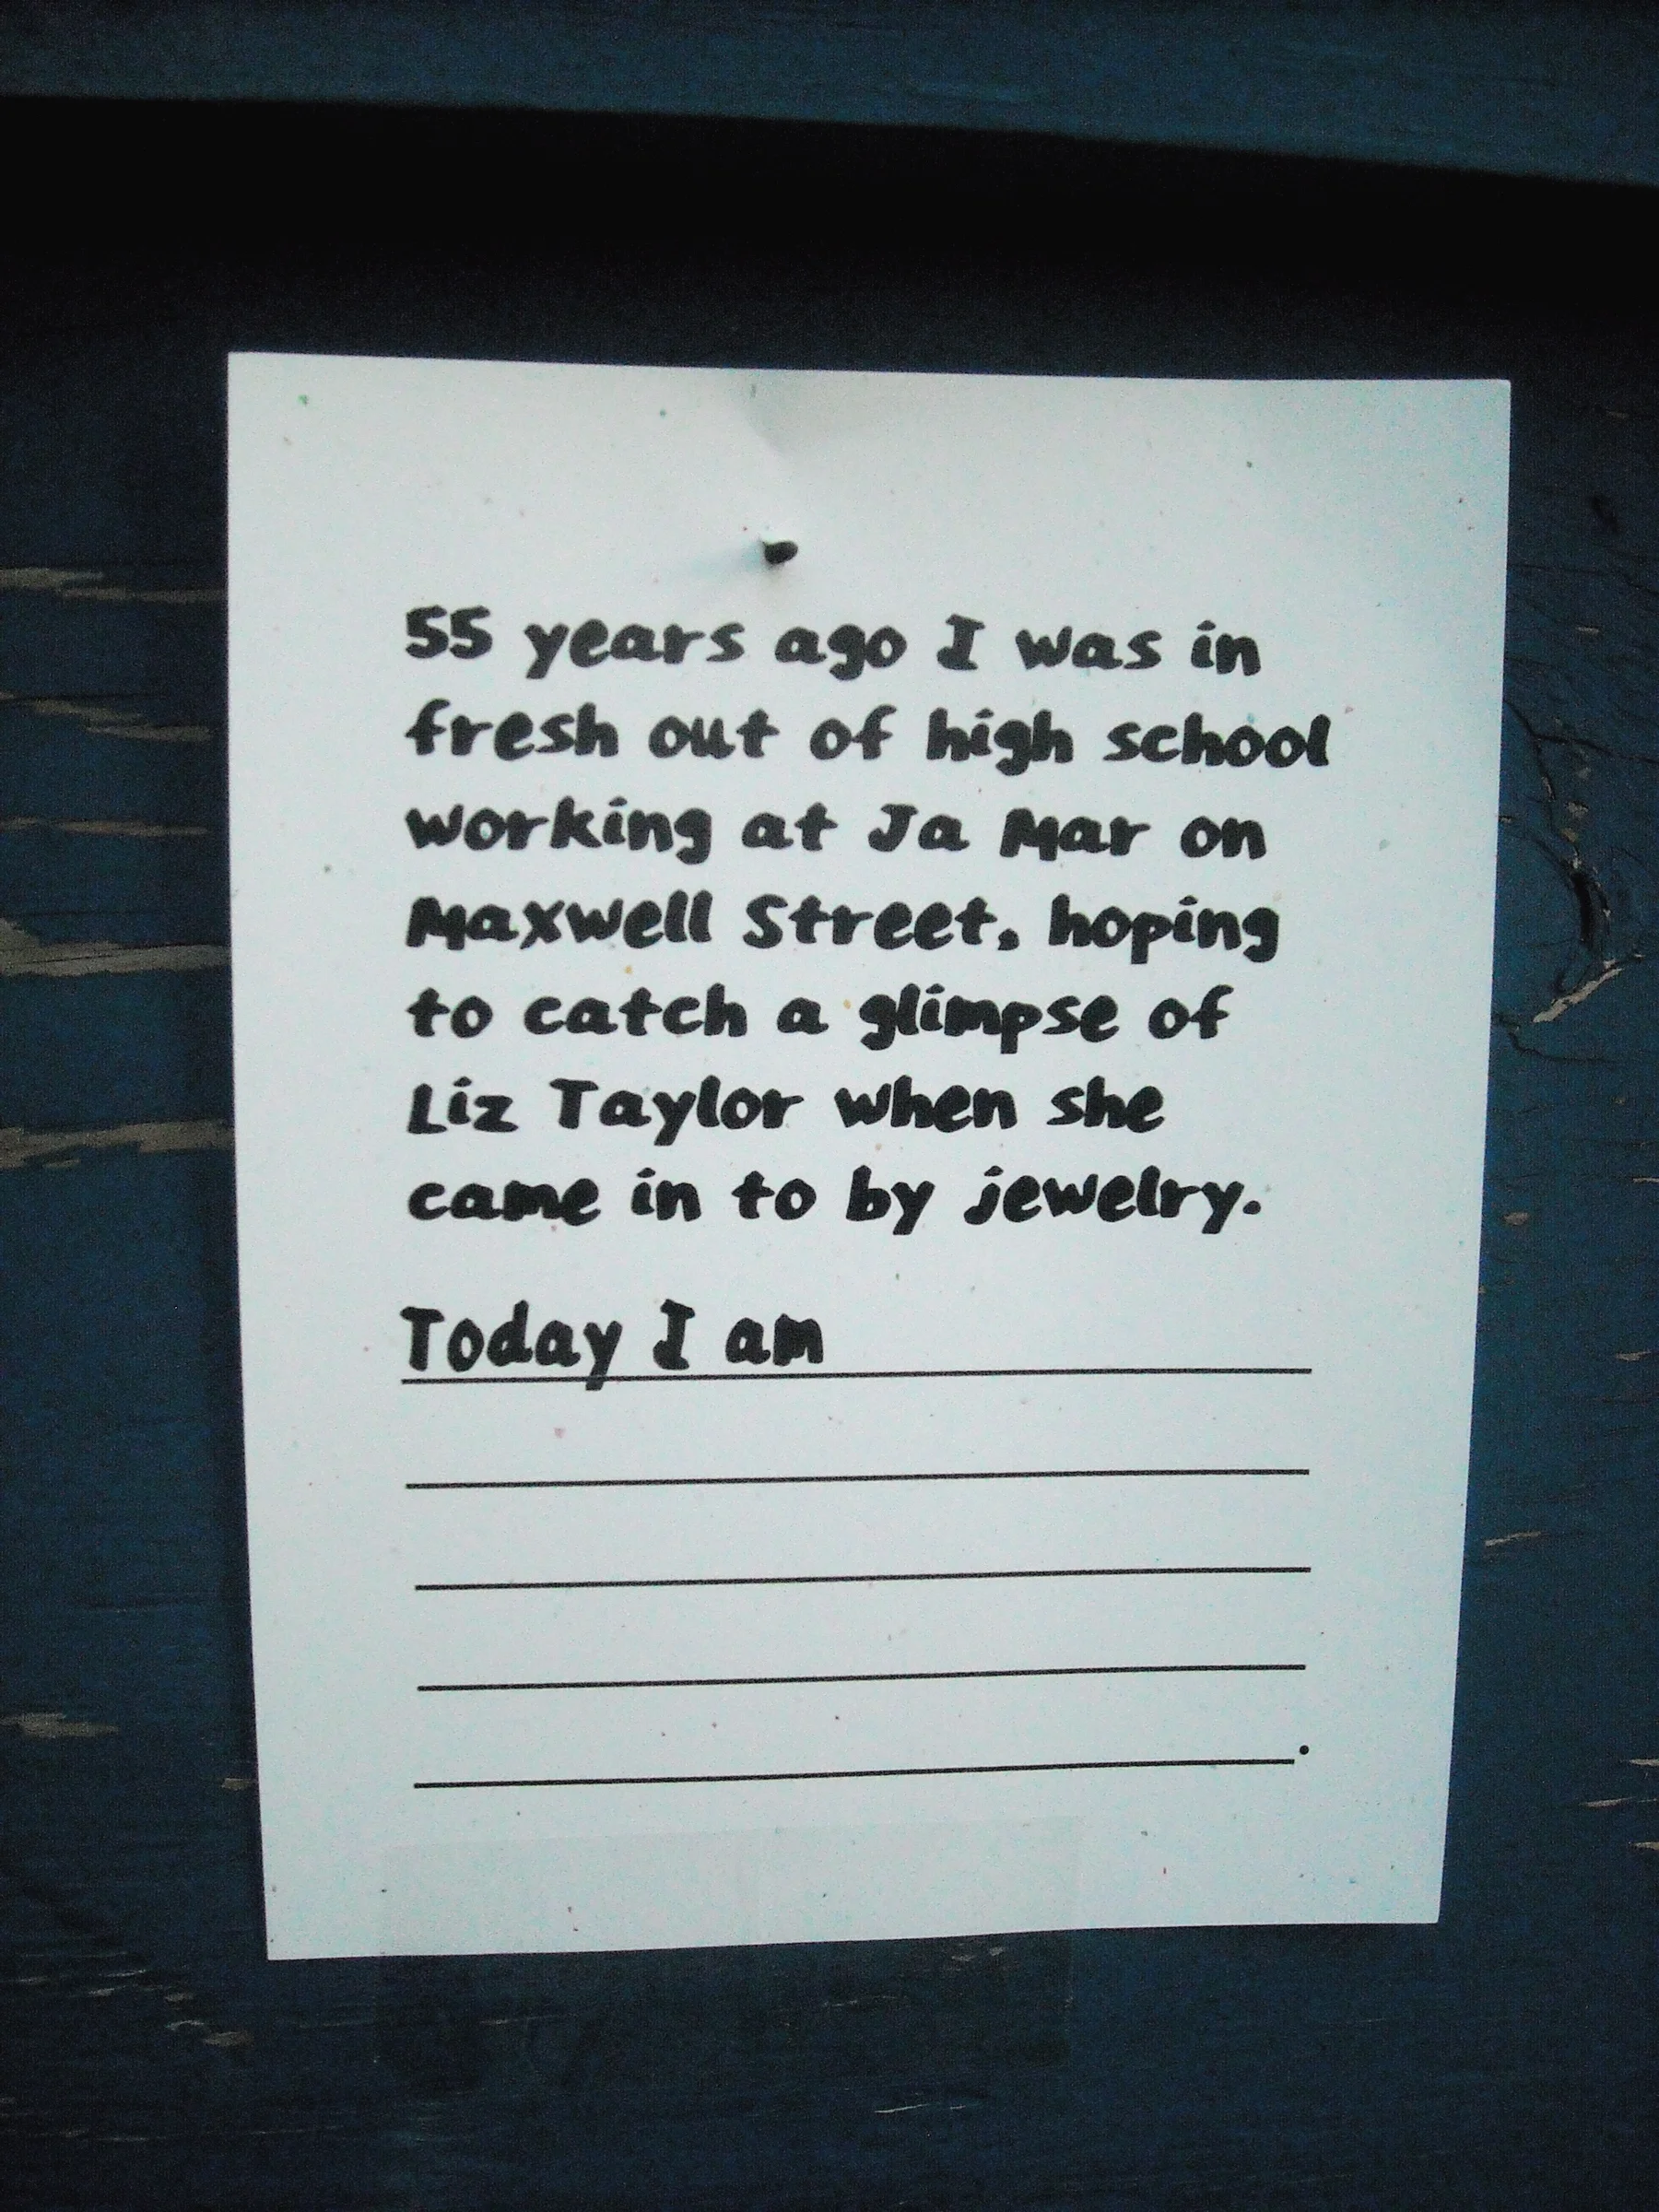 55 years ago I was in
fresh out of high school
working at Ja Mar on
Maxwell Street, hoping
to catch a glimpse of
Liz Taylor when she
came in to by jewelry.
Today I am
.